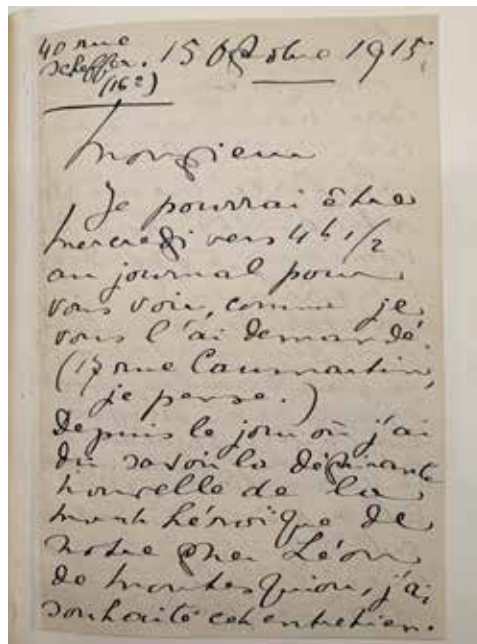 40 rue
Scheffer. 15 Octobre 1915.
(16e)
Monsieur
Je pourrai être
mercredi vers 4h 1/2
au journal pour
vous voir, comme je
vous l'ai demandé.
(17 rue Caumartin,
je pense.)
Depuis le jour où j'ai
du savoir la déchirante
nouvelle de la
mort héroïque de
notre cher Léon
de Montesquiou, j'ai
souhaité cet entretien.